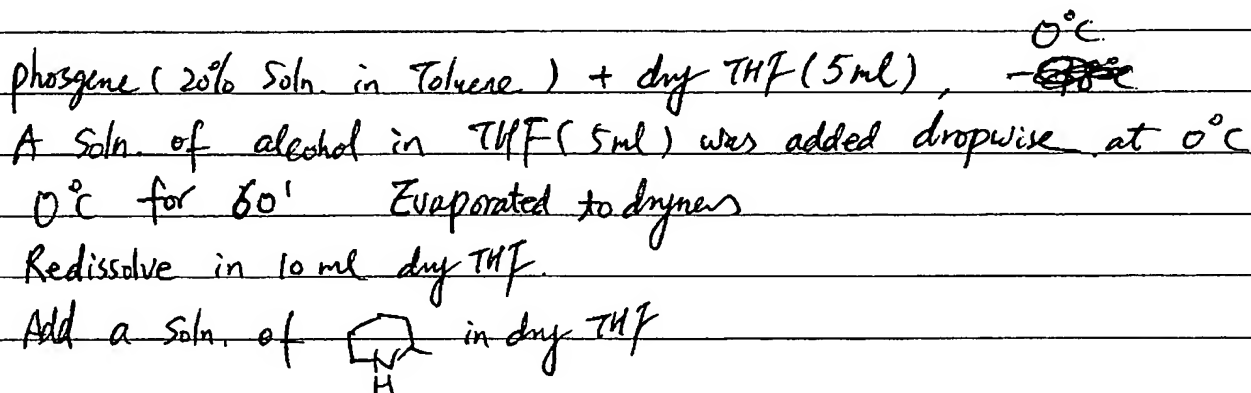 phosgene (20% Soln. in Toluene.) + dry THF (5ml), 0°C
A Soln. of alcohol in THF (5ml) was added dropwise at 0°C
0°C for 60' Evaporated to dryness
Redissolve in 10 ml dry THF.
Add a soln. of N H in dry THF